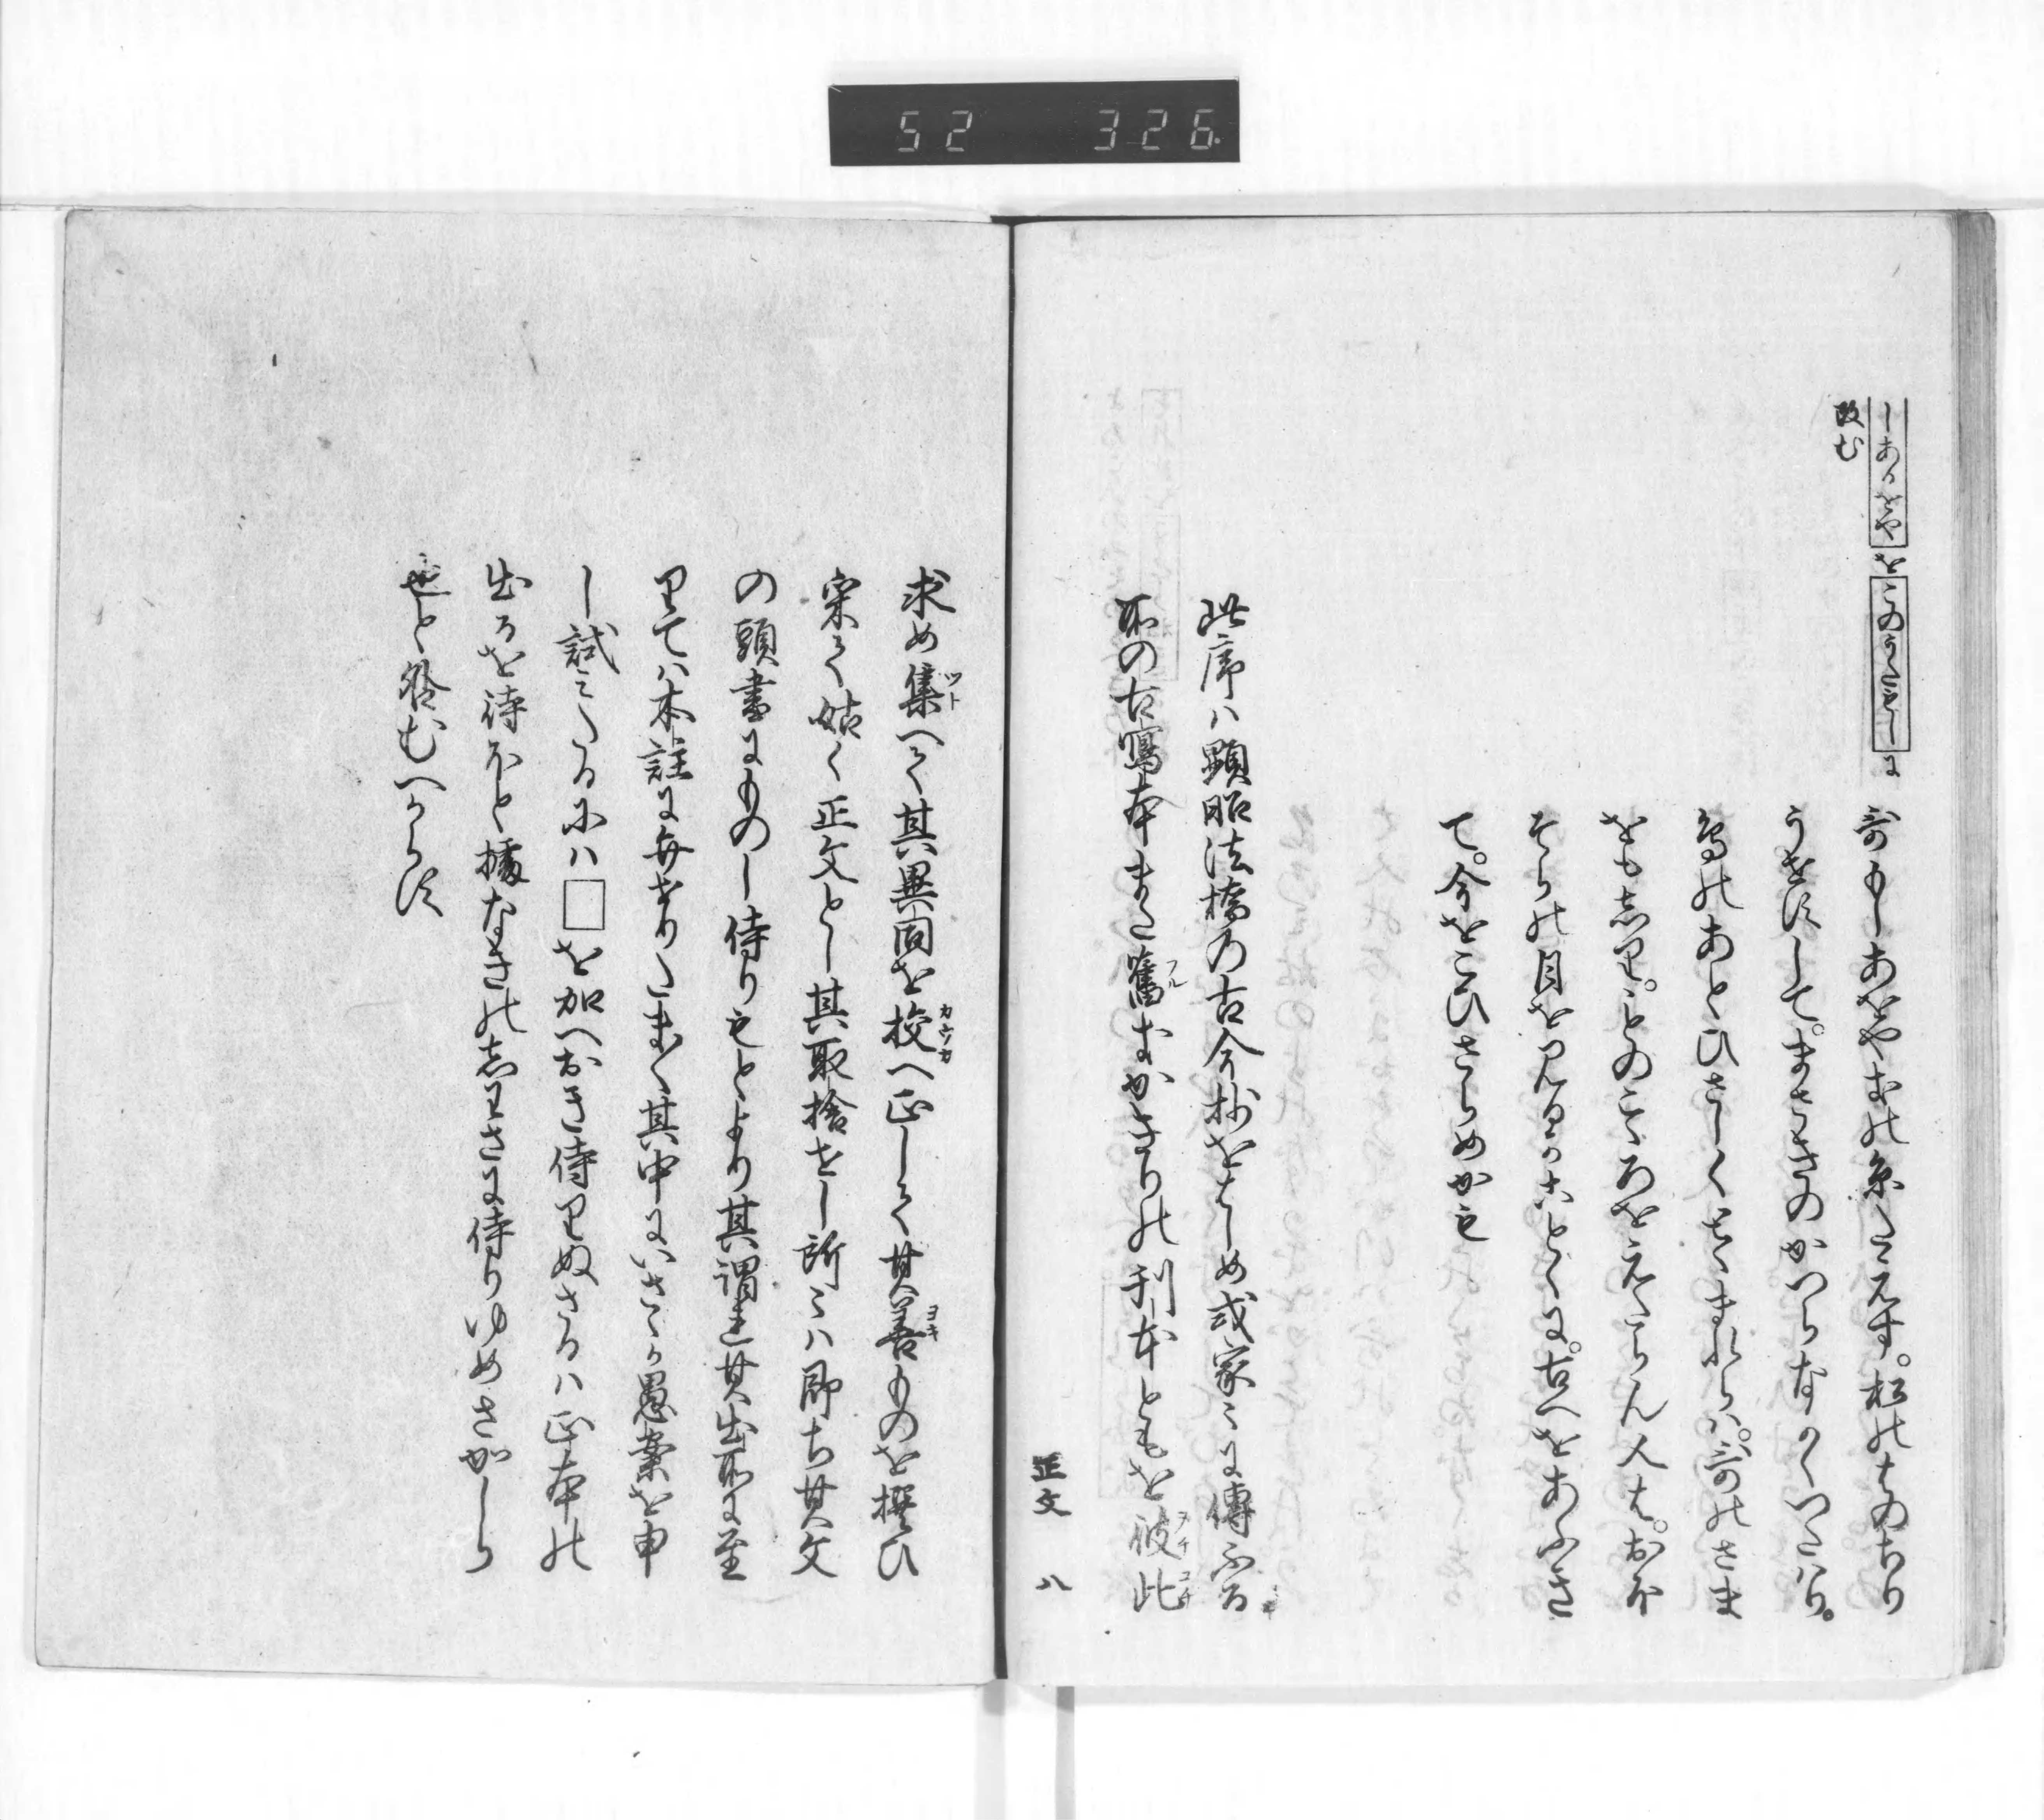 52 326
しあをや を このうたもし に
改む
哥もしあをやきの糸たえす。松のはのちり
うせすして。まさきのかつらなかくつたはり。
鳥のあとひさしくとゝまれらは。哥のさま
をも志り。ことのこゝろをえたらん人は。おほ
そらの月を見るかことくに。古へをあふき
て。今をこひさらめかも
此序ハ顕昭法橋乃古今抄をはしめ或家〻に傳ふる
所の古寫本また舊なかきりの刊本ともを彼此
正文 八
求め集へて其異同を挍へ正して其善ものを撰ひ
宲て姑く正文とし其取捨せし所〻ハ即ち其文
の頭書にものし侍りもとより其謂れ其出所に至
りてハ本註に弁せりたまく其中にいさゝか愚案を申
し試みたるにハ□を加へおき侍りぬさるハ正本の
出るを待ほと據なきの志わさに侍りゆめさかしら
也と咎むへからす